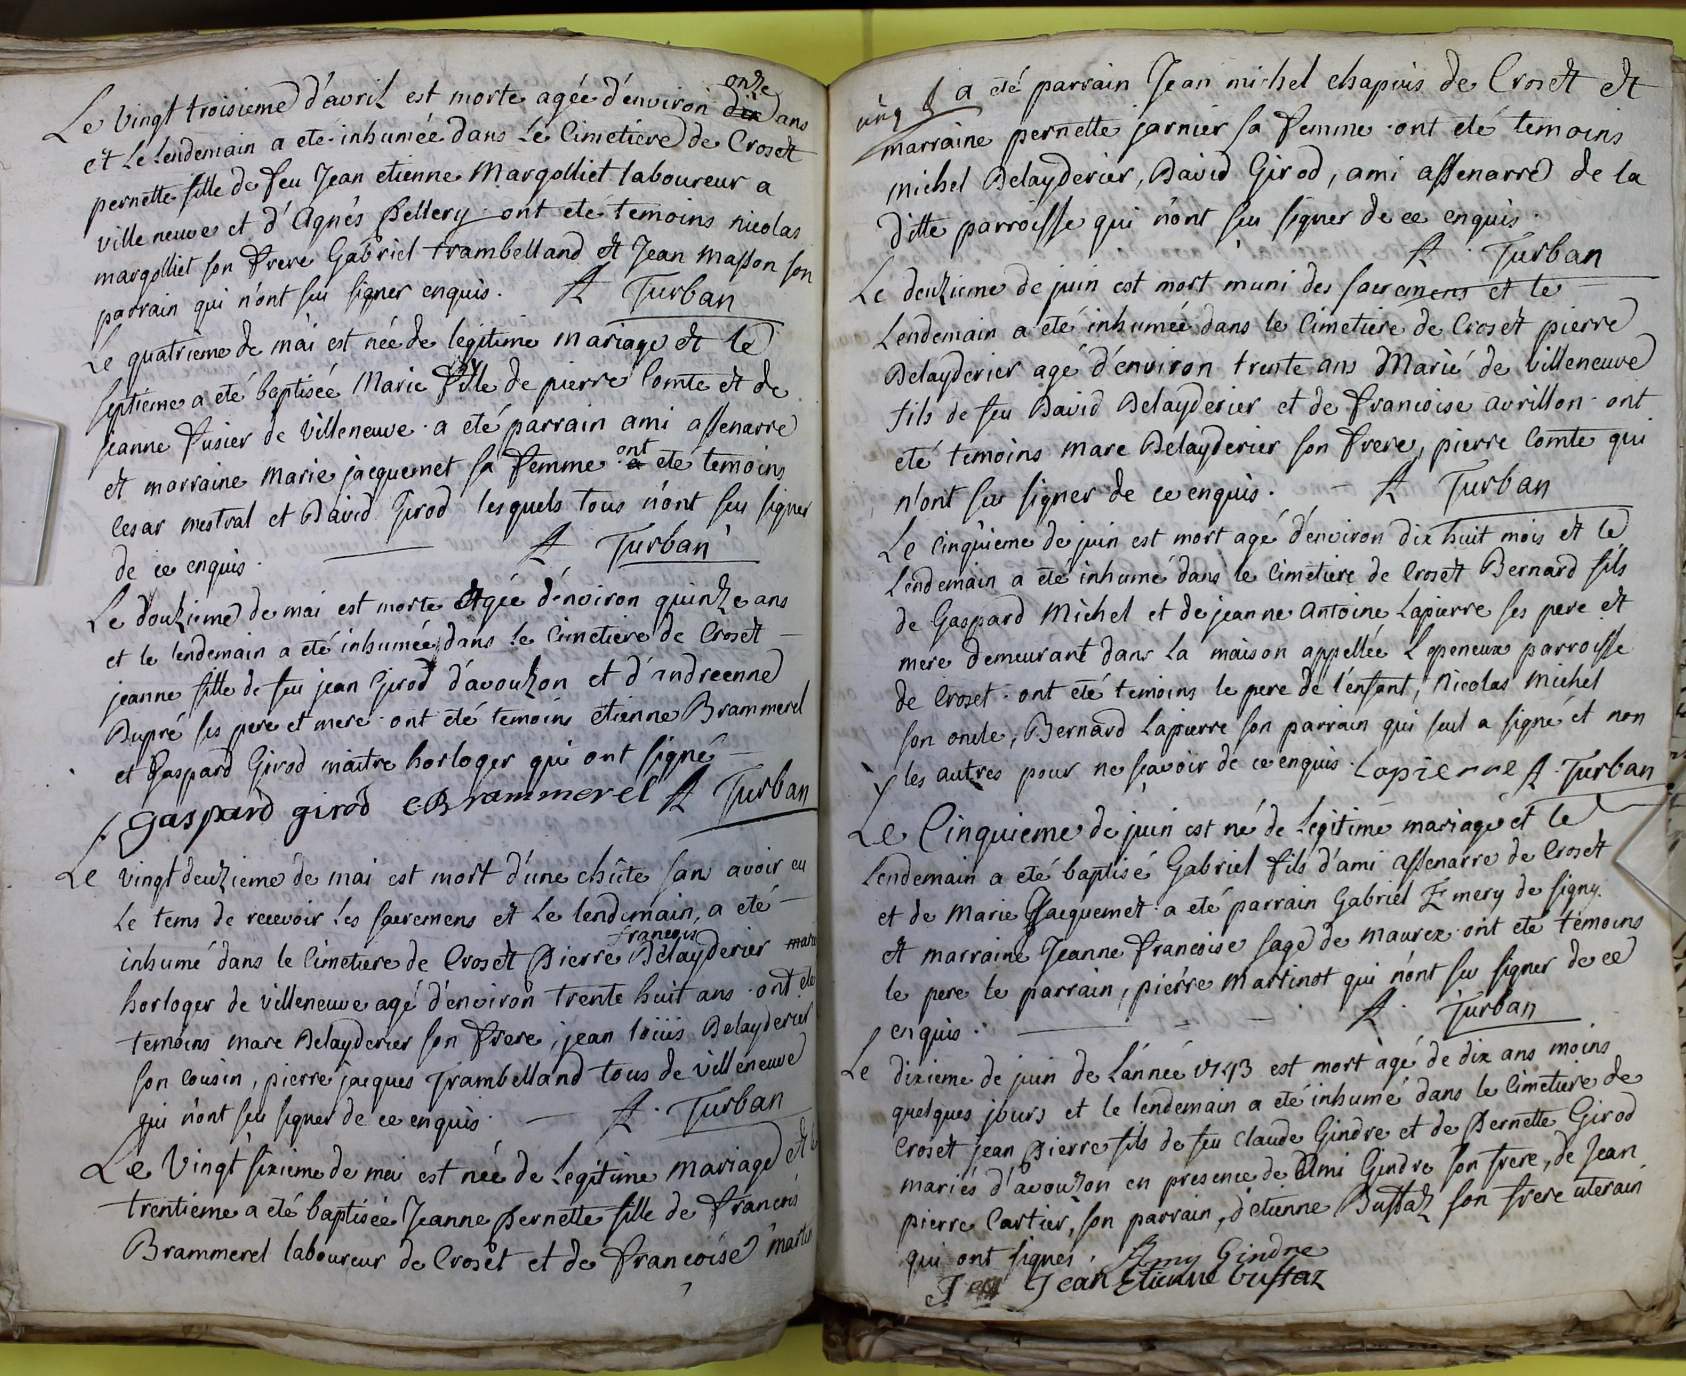 Le vingt troisieme d'avril est morte agée d'environ dix onze ans
et le lendemain a eté inhumée dans le Cimetiere de Croset
pernette fille de feu Jean etienne Margolliet laboureur a
villeneuve et d'Agnés Pellery ont eté temoins nicolas
margolliet son frere Gabriel trambelland et Jean masson son
parrain qui n'ont seu signer enquis. A Turban
Le quatrieme de mai est née de legitime mariage et le
septieme a eté baptisée Marie fille de pierre Comte et de
jeanne fusier de villeneuve a eté parrain ami assenarre
et marraine Marie jacquemet sa femme a ont eté temoins
Cesar mestral et David Girod lesquels tous n'ont seu signer
de ce enquis. A Turban
Le douzieme de mai est morte Agée d'environ quinze ans
et le lendemain a eté inhumée dans le Cimetiere de Croset
jeanne fille de feu jean Girod d'avouzon et d'andreenne
Dupré ses pere et mere ont eté temoins etienne Brammerel
et Gaspard Girod maitre horloger qui ont signé
gaspard girod E Brammerel A Turban
Le vingt deuzieme de mai est mort d'une chûte sans avoir eu
le tems de recevoir les sacremens et le lendemain, a eté
inhumé dans le Cimetiere de Croset Pierre françois Delayderier
horloger de villeneuve agé d'environ trente huit ans ont eté
temoins marc Delayderier son frere, jean loüis Delayderier
son Cousin, pierre jacques Trambelland tous de villeneuve
qui n'ont seu signer de ce enquis. A. Turban
Le Vingt sixieme de mai est née de Legitime mariage et le
trentieme a eté baptisée Jeanne Pernette fille de François
Brammerel laboureur de Croset et de Françoise
a eté parrain Jean michel chapuis de Croset et
marraine pernette jarnier sa femme ont eté temoins
michel Delayderier, David Girod, ami assenarre de la
ditte parroisse qui n'ont seu signer de ce enquis.
A. Turban
Le deuzieme de juin est mort muni des sacremens et le
Lendemain a eté inhumée dans le Cimetiere de Croset pierre
Delayderier agé d'environ trente ans Marié de villeneuve
fils de feu David Delayderier et de françoise avrillon ont
eté temoins marc Delayderier son frere, pierre Comte qui
n'ont seu signer de ce enquis. A Turban
Le Cinquieme de juin est mort agé d'environ dix huit mois et le
Lendemain a eté inhumé dans le Cimetiere de Croset Bernard fils
de Gaspard Michel et de jeanne antoine Lapierre ses pere et
mere demeurant dans la maison appellée L'epeneux parroisse
de Croset ont eté temoins le pere de l'enfant, Nicolas Michel
son oncle, Bernard Lapierre son parrain qui seul a signé et non
les autres pour ne sçavoir de ce enquis. Lapierre A. Turban
Le Cinquieme de juin est né de Legitime mariage et le
Lendemain a eté baptisé Gabriel fils d'ami assenarre de Croset
et de Marie Jacquemet a eté parrain Gabriel Emery de signy.
et marraine Jeanne françoise sage de maurex ont eté témoins
le pere le parrain, pierre Martinot qui n'ont seu signer de ce
enquis. A. Turban
Le dixieme de juin de L'année 1743 est mort agé de dix ans moins
quelques jours et le lendemain a eté inhumé dans le Cimetiere de
Croset jean Pierre fils de feu Claude Gindre et de Pernette Girod
mariés d'avouzon en presence de Ami Gindre son frere, de Jean
pierre Cartier, son parrain, d'etienne Bustaz son frere uterain
qui ont signés. Amy Gindre
Jean Etienne bustaz